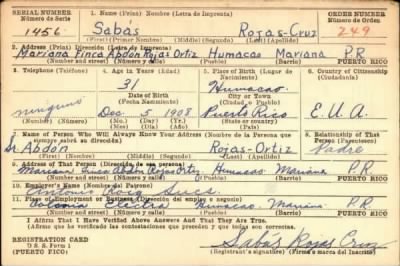 SERIAL NUMBER 1. Name (Print) Nombre (Letra de Imprenta) ORDER NUMBER
Número de Serie Número de Orden
1456 Sabás Rojas-Cruz 249
(First) (Primer Nombre) (Middle) (Segundo) (Last) (Apellido)
2. Address (Print) Dirección (Letra de Imprenta)
Mariana Finca Abdón Rojas Ortiz Humacao Mariana P.R
(Number and street) (Número y calle) (Town) (Pueblo) (Barrio) PUERTO RICO
3. Telephone (Teléfono) 4. Age in Years (Edad) 5. Place of Birth (Lugar de Nacimiento) 6. Country of Citizenship (Ciudadanía)
31 Humacao
Date of Birth (Fecha Nacimiento) City or Town (Ciudad o Pueblo)
ninguno Dec. 5 1908 Puerto Rico E.U.A
(Number) (Número) (Mo.) (Mes) (Day) (Día) (Yr.) (Año) State or country
7. Name of Person Who Will Always Know Your Address (Nombre de la Persona que siempre sabrá su dirección) 8. Relationship of That Person
Abdón Rojas-Ortiz Padre
(First) (Nombre) (Middle) (Segundo) (Last) (Apellido)
9. Address of That Person (Dirección de esa persona)
Mariana Finca Abdon Rojas Ortiz Humacao Mariana P.R
(Number and street) (Número y calle) (Town) (Pueblo) (Barrio) PUERTO RICO
10. Employer's Name (Nombre del Patrono)
Antonio Roig Sucs.
11. Place of Employment or Business (Dirección del empleo o negocio)
Colonia Electra Humacao Mariana P.R.
(Number and street) (Número y calle) (Town) (Pueblo) (Barrio) PUERTO RICO
I Affirm That I Have Verified Above Answers and That They Are True.
(Afirmo que he verificado las contestaciones que preceden y que todas son ciertas.)
REGISTRATION CARD
Sabás Rojas Cruz
Registrant's signature) (Firma o marca del inscrito)